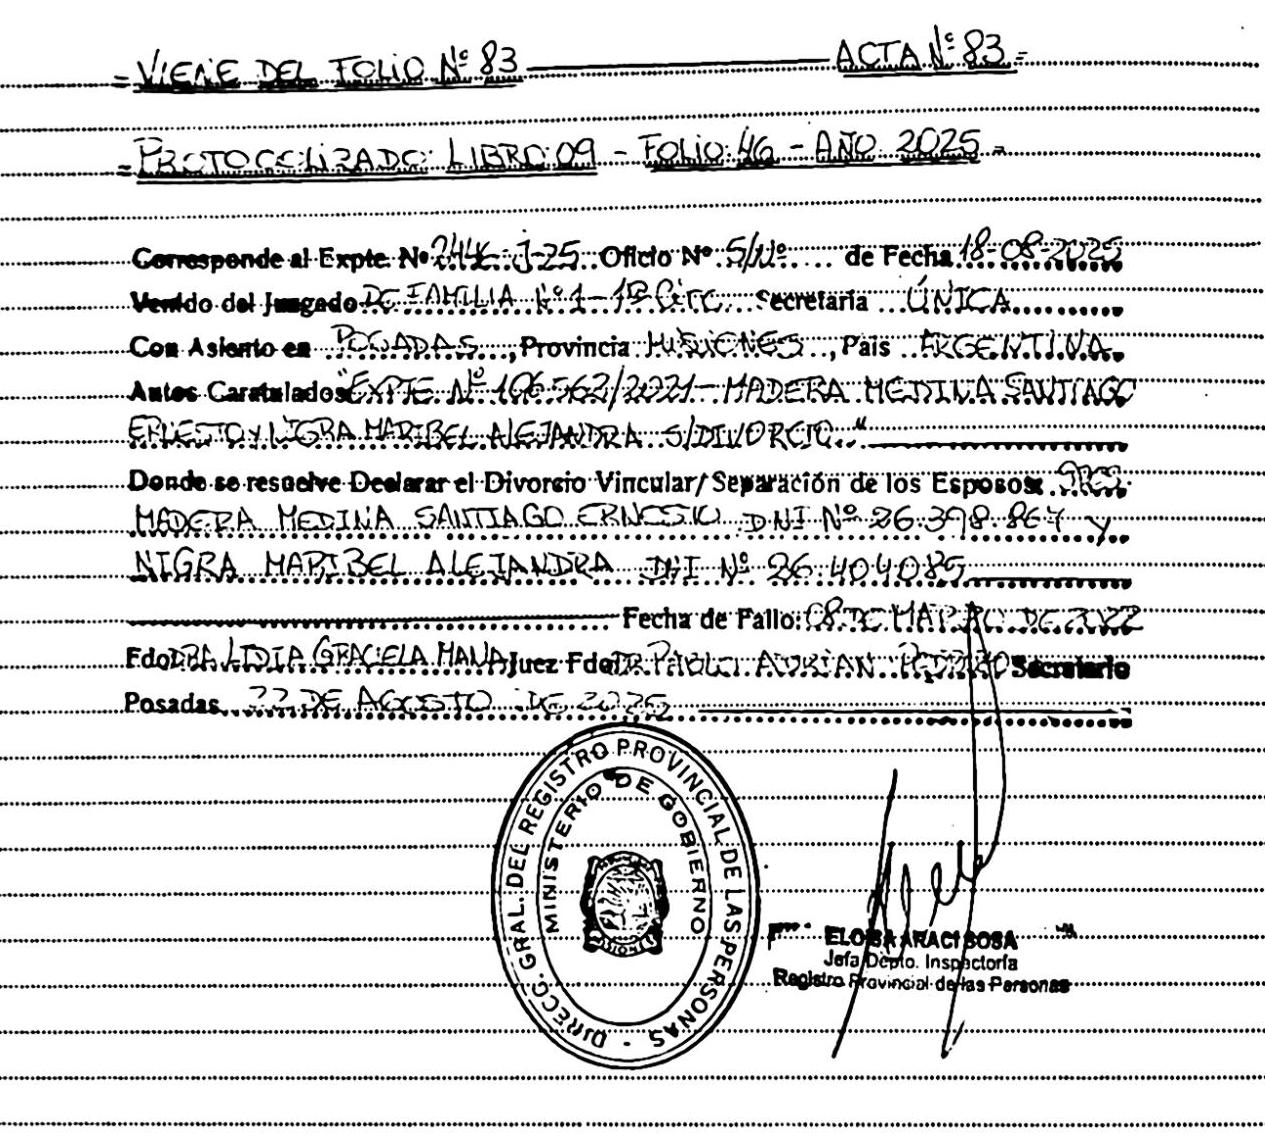 = VIENE DEL FOLIO Nº 83 ACTA Nº 83 =
= PROTOCOLIZADO: LIBRO: 09 - FOLIO: 46 - AÑO: 2025 =
Corresponde al Expte. Nº J-25 Oficio Nº S/Nº de Fecha 18-08-2025
Venido del Juzgado DE FAMILIA Nº 1 - 1ª Secretaría ÚNICA
Con Asiento en POSADAS, Provincia MISIONES, País ARGENTINA.
Autos Caratulados "EXPTE Nº 106562/2021- MADERA MEDINA SANTIAGO
ERNESTO Y NIGRA MARIBEL ALEJANDRA S/DIVORCIO"
Donde se resuelve Declarar el Divorcio Vincular/ Separación de los Esposos:
MADERA MEDINA SANTIAGO ERNESTO DNI Nº 26.398.867 y
NIGRA MARIBEL ALEJANDRA DNI Nº 26.404.089
Fecha de Fallo: 08 DE MARZO DE 2022
Fdo. DRA LIDIA GRACIELA Juez Fdo. DR. PABLO ADRIAN Secretario
Posadas, 22 DE AGOSTO DE 2025
DIRECC. GRAL. DEL REGISTRO PROVINCIAL DE LAS PERSONAS -
MINISTERIO DE GOBIERNO
ELOISA ARACI SOSA
Jefa Depto. Inspectoría
Registro Provincial de las Personas